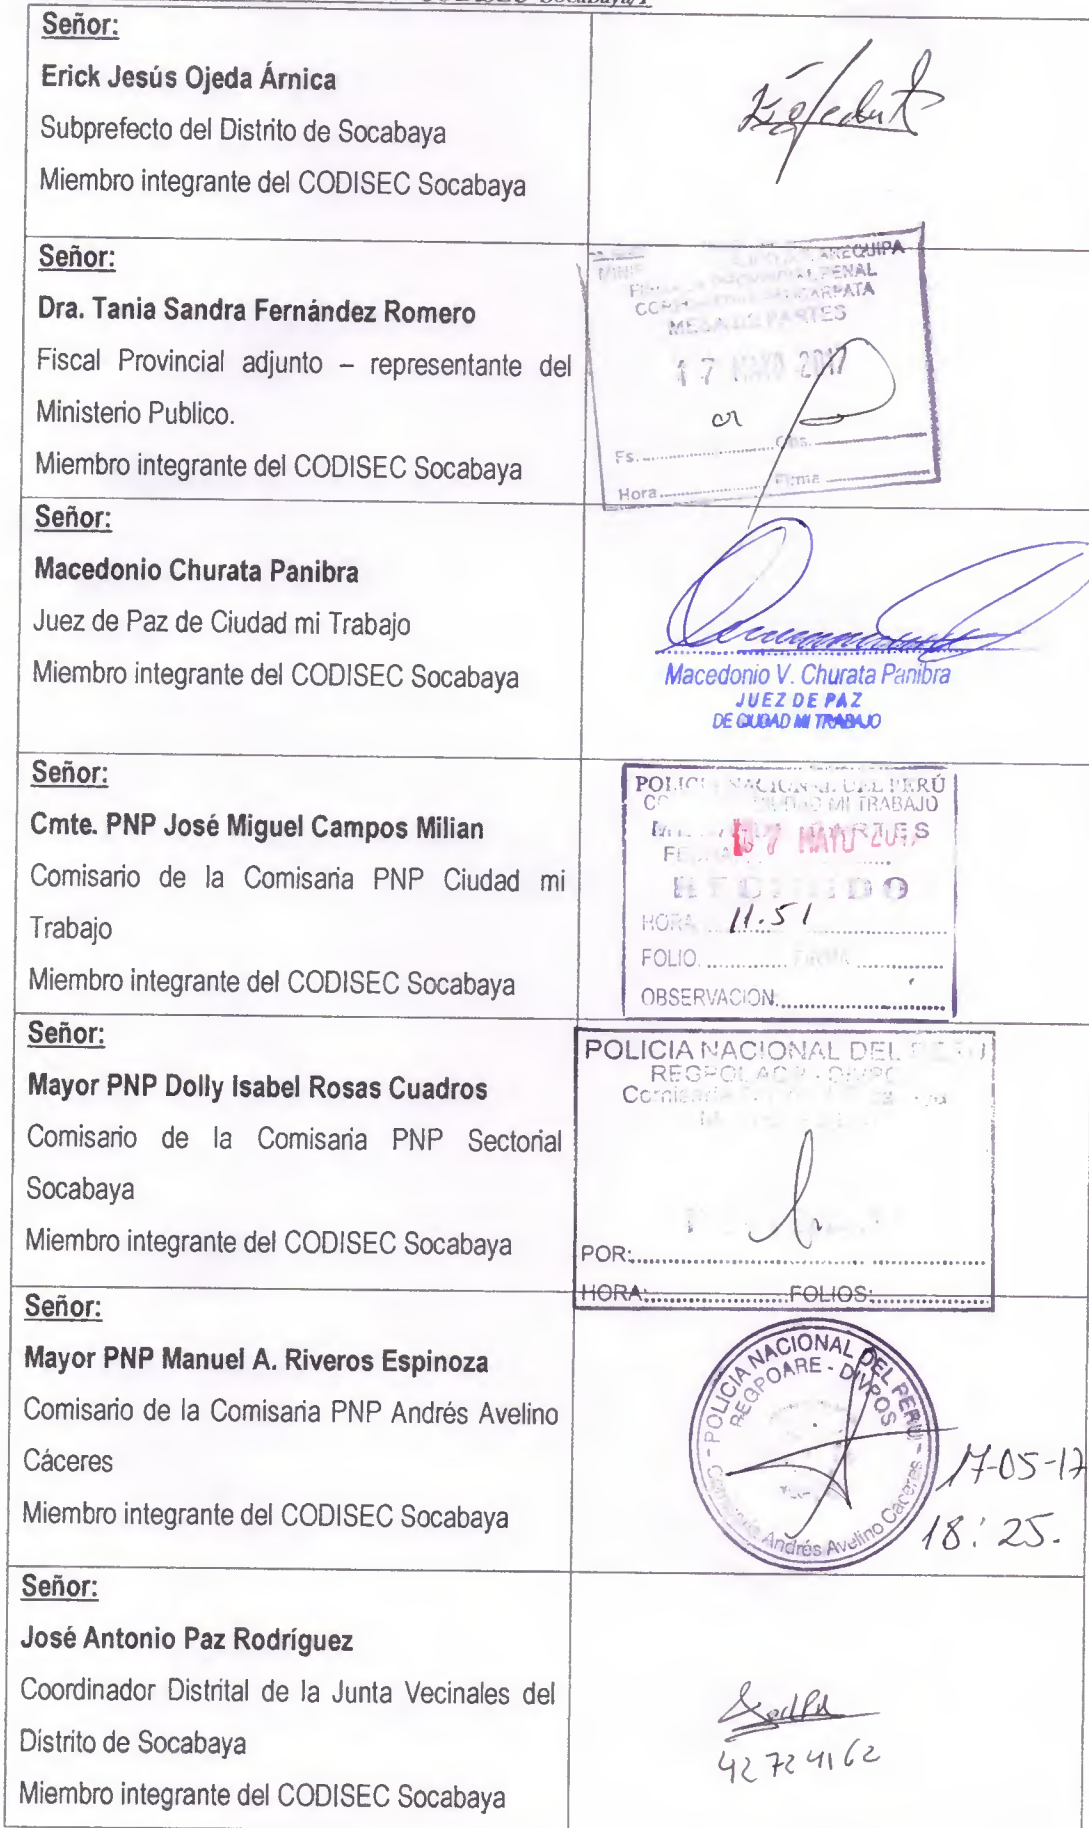 CODISEC-Socabaya/P
Señor:
Erick Jesús Ojeda Árnica
Subprefecto del Distrito de Socabaya
Miembro integrante del CODISEC Socabaya
Señor:
Dra. Tania Sandra Fernández Romero
Fiscal Provincial adjunto – representante del
Ministerio Publico.
Miembro integrante del CODISEC Socabaya
AREQUIPA
PENAL
MESA DE PARTES
17 MAYO 2017
Fs. Obs.
Hora Firma
Señor:
Macedonio Churata Panibra
Juez de Paz de Ciudad mi Trabajo
Miembro integrante del CODISEC Socabaya
Macedonio V. Churata Panibra
JUEZ DE PAZ
DE CIUDAD MI TRABAJO
Señor:
Cmte. PNP José Miguel Campos Milian
Comisario de la Comisaria PNP Ciudad mi
Trabajo
Miembro integrante del CODISEC Socabaya
POLICIA NACIONAL DEL PERÚ
CIUDAD MI TRABAJO
PARTES
MAYO 2017
RECIBIDO
HORA 11.51
FOLIO. FIRMA
OBSERVACION:
Señor:
Mayor PNP Dolly Isabel Rosas Cuadros
Comisario de la Comisaria PNP Sectorial
Socabaya
Miembro integrante del CODISEC Socabaya
POLICIA NACIONAL DEL PERU
Comisaria
POR:
HORA: FOLIOS:
Señor:
Mayor PNP Manuel A. Riveros Espinoza
Comisario de la Comisaria PNP Andrés Avelino
Cáceres
Miembro integrante del CODISEC Socabaya
POLICIA NACIONAL DEL PERU
REGPOARE - DIVPOS
Comisaria Andrés Avelino Cáceres
17-05-17
18:25.
Señor:
José Antonio Paz Rodríguez
Coordinador Distrital de la Junta Vecinales del
Distrito de Socabaya
Miembro integrante del CODISEC Socabaya
42724162